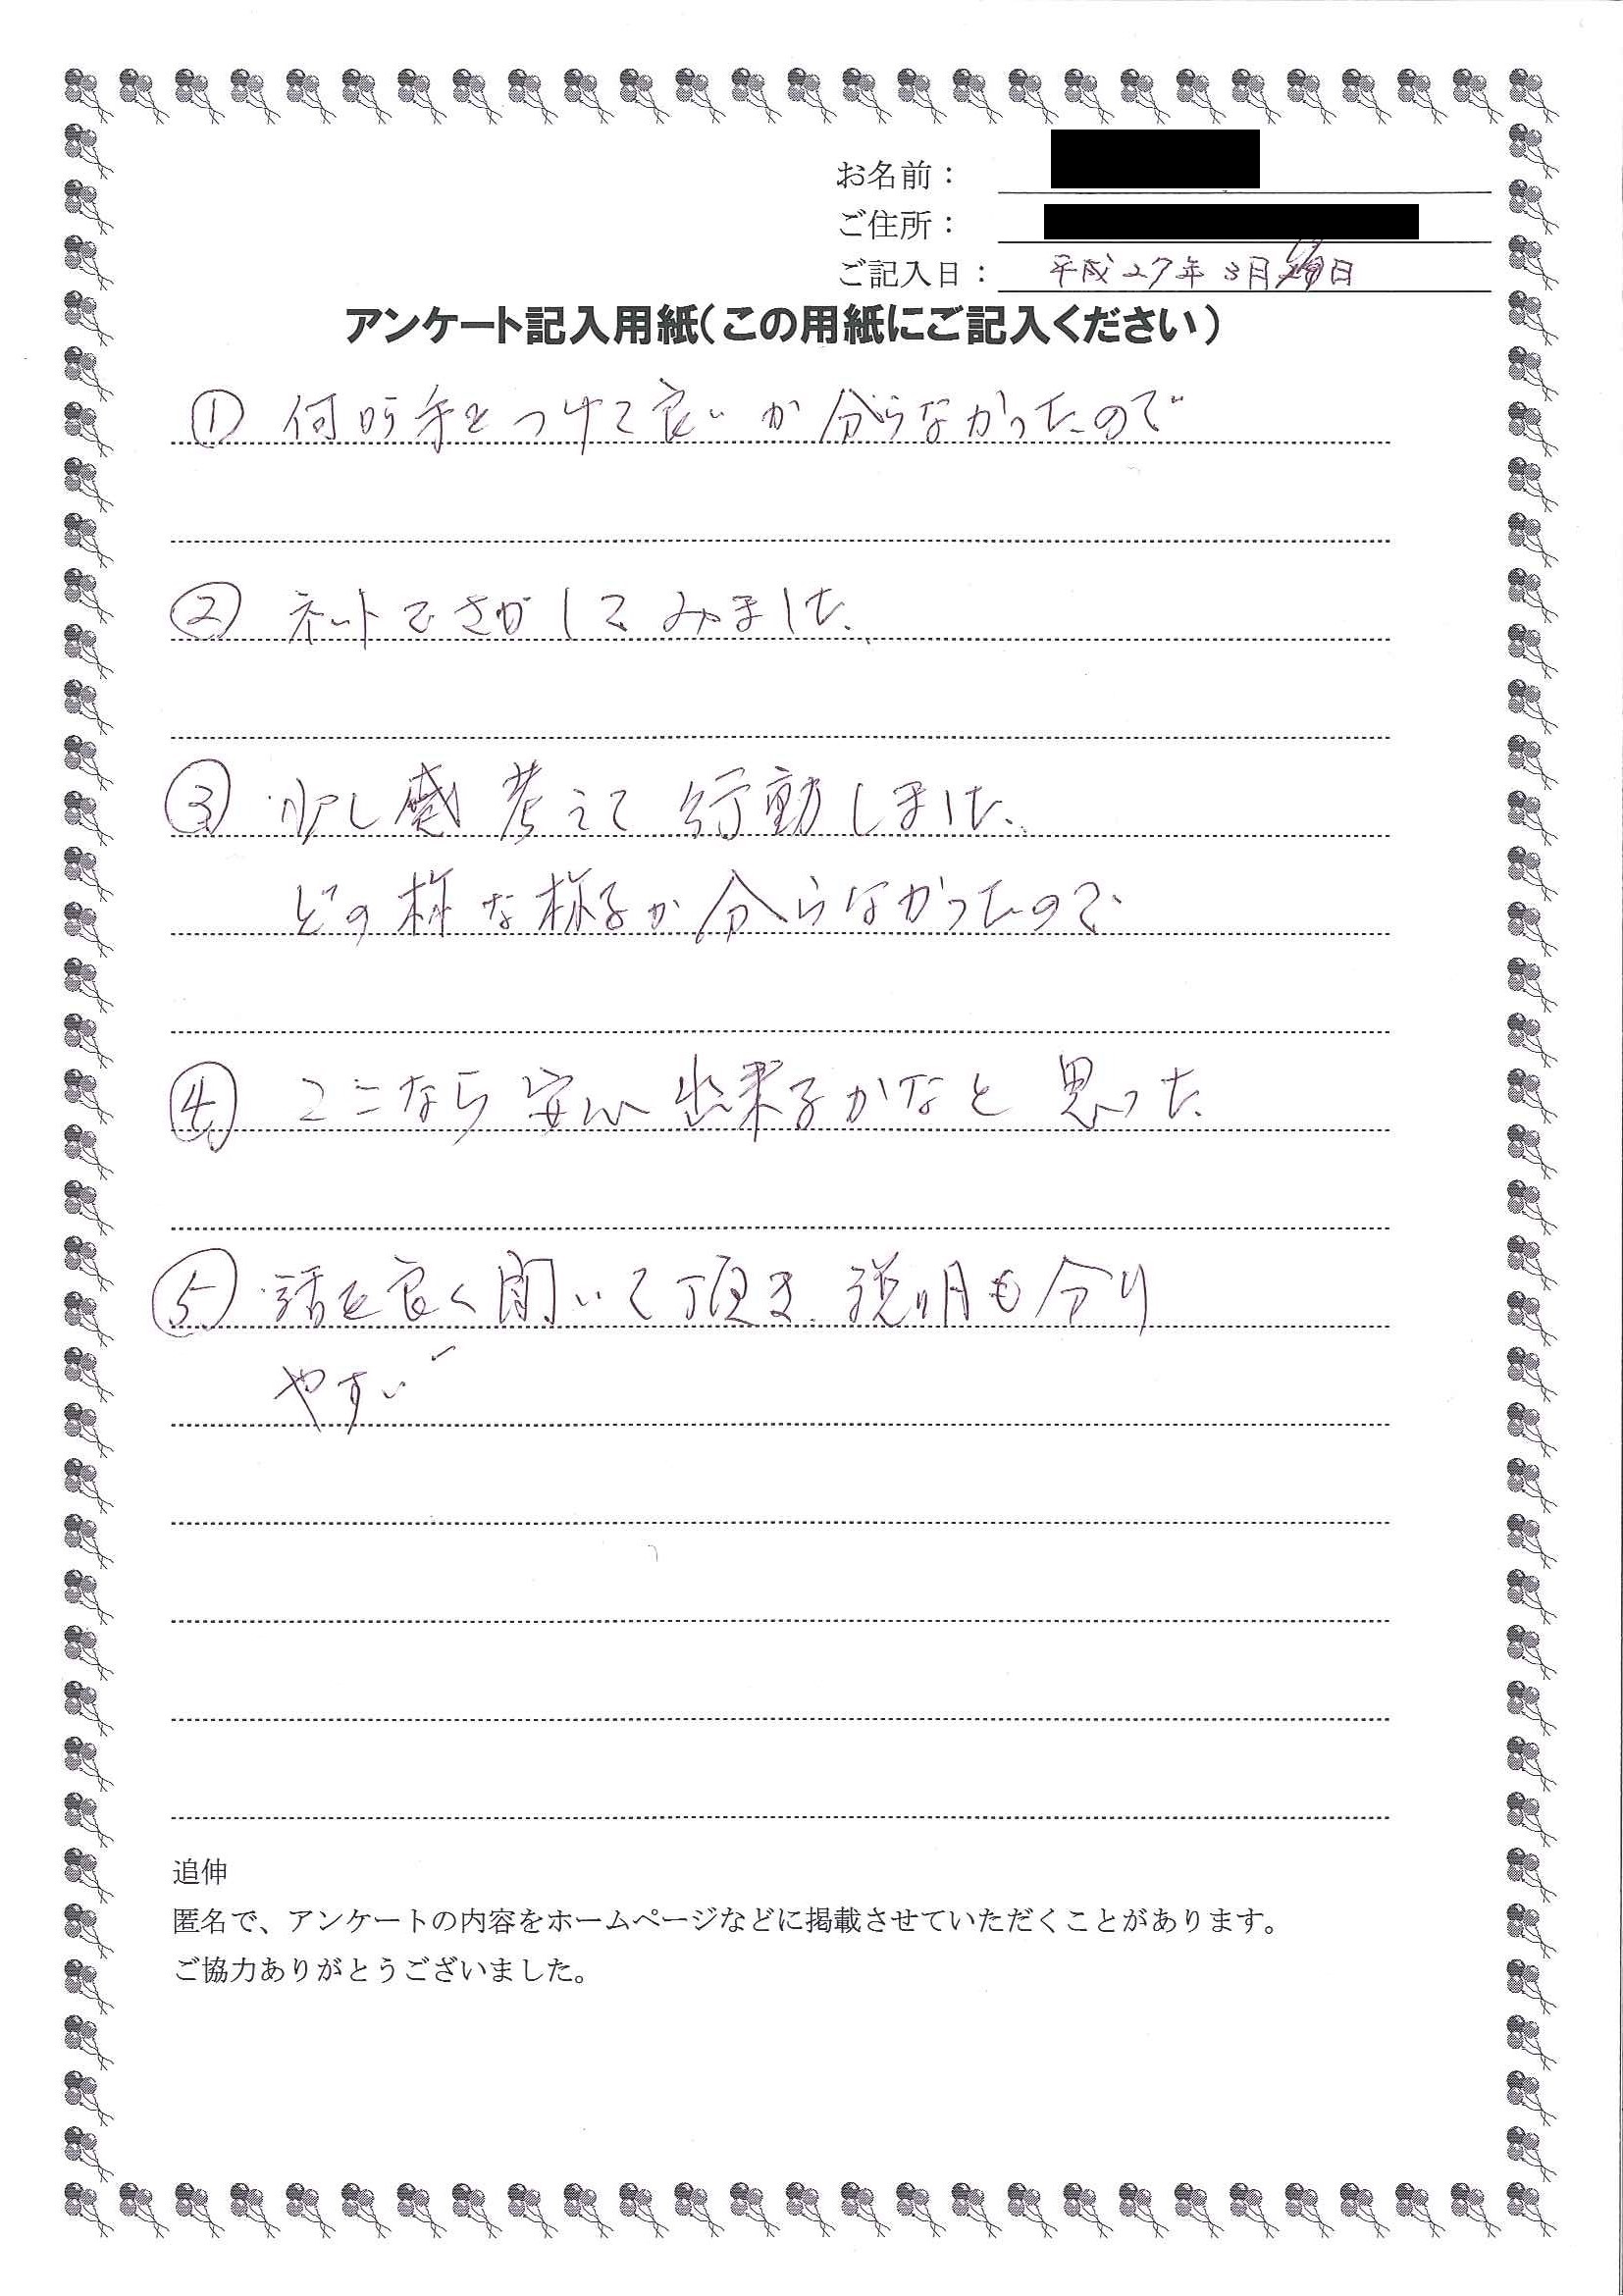 お名前：
ご住所：
ご記入日： 平成27年3月 日
アンケート記入用紙（この用紙にご記入ください）
① 何所手をつけて良いか分らなかったので
② ネットでさがしてみました。
③ 少し 考えて行動しました。
どの様な様子か分らなかったので
④ ここなら安心出来るかなと思った
⑤ 話を良く聞いて頂き 説明も分り
やすい
追伸
匿名で、アンケートの内容をホームページなどに掲載させていただくことがあります。
ご協力ありがとうございました。